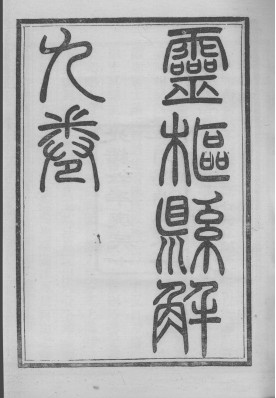 靈樞縣解
九卷